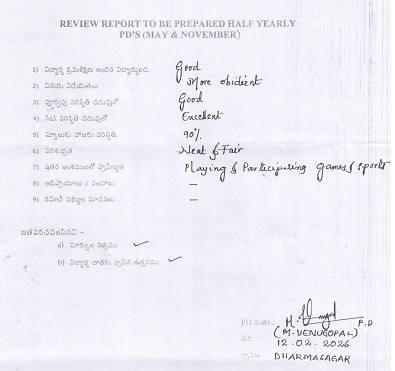 REVIEW REPORT TO BE PREPARED HALF YEARLY
PD'S (MAY & NOVEMBER)
1) విద్యార్థి క్రమశిక్షణ అందరి విద్యార్థులచే. Good
2) వినయ విధేయతలు More obidient
3) పూర్వపు పరిస్థితి చదువులో Good
4) నేటి పరిస్థితి చదువులో Excellent
5) స్కూలుకు హాజరు పరిస్థితి. 90%
6) పరిశుభ్రత Neat & Fair
7) ఇతర అంశములలో ప్రావీణ్యత Playing & Participating games & sports
8) అభిప్రాయాలు / సలహాలు —
9) కమిటీ సభ్యుల సూచనలు —
జతపరచవలసినవి :-
a) మార్కుల పత్రము ✓
b) విద్యార్థి దాతకు వ్రాసిన ఉత్తరము ✓
PD సంతకం P.D
(M. VENUGOPAL)
తేది 12.02.2026
గ్రామం DHARMASAGAR